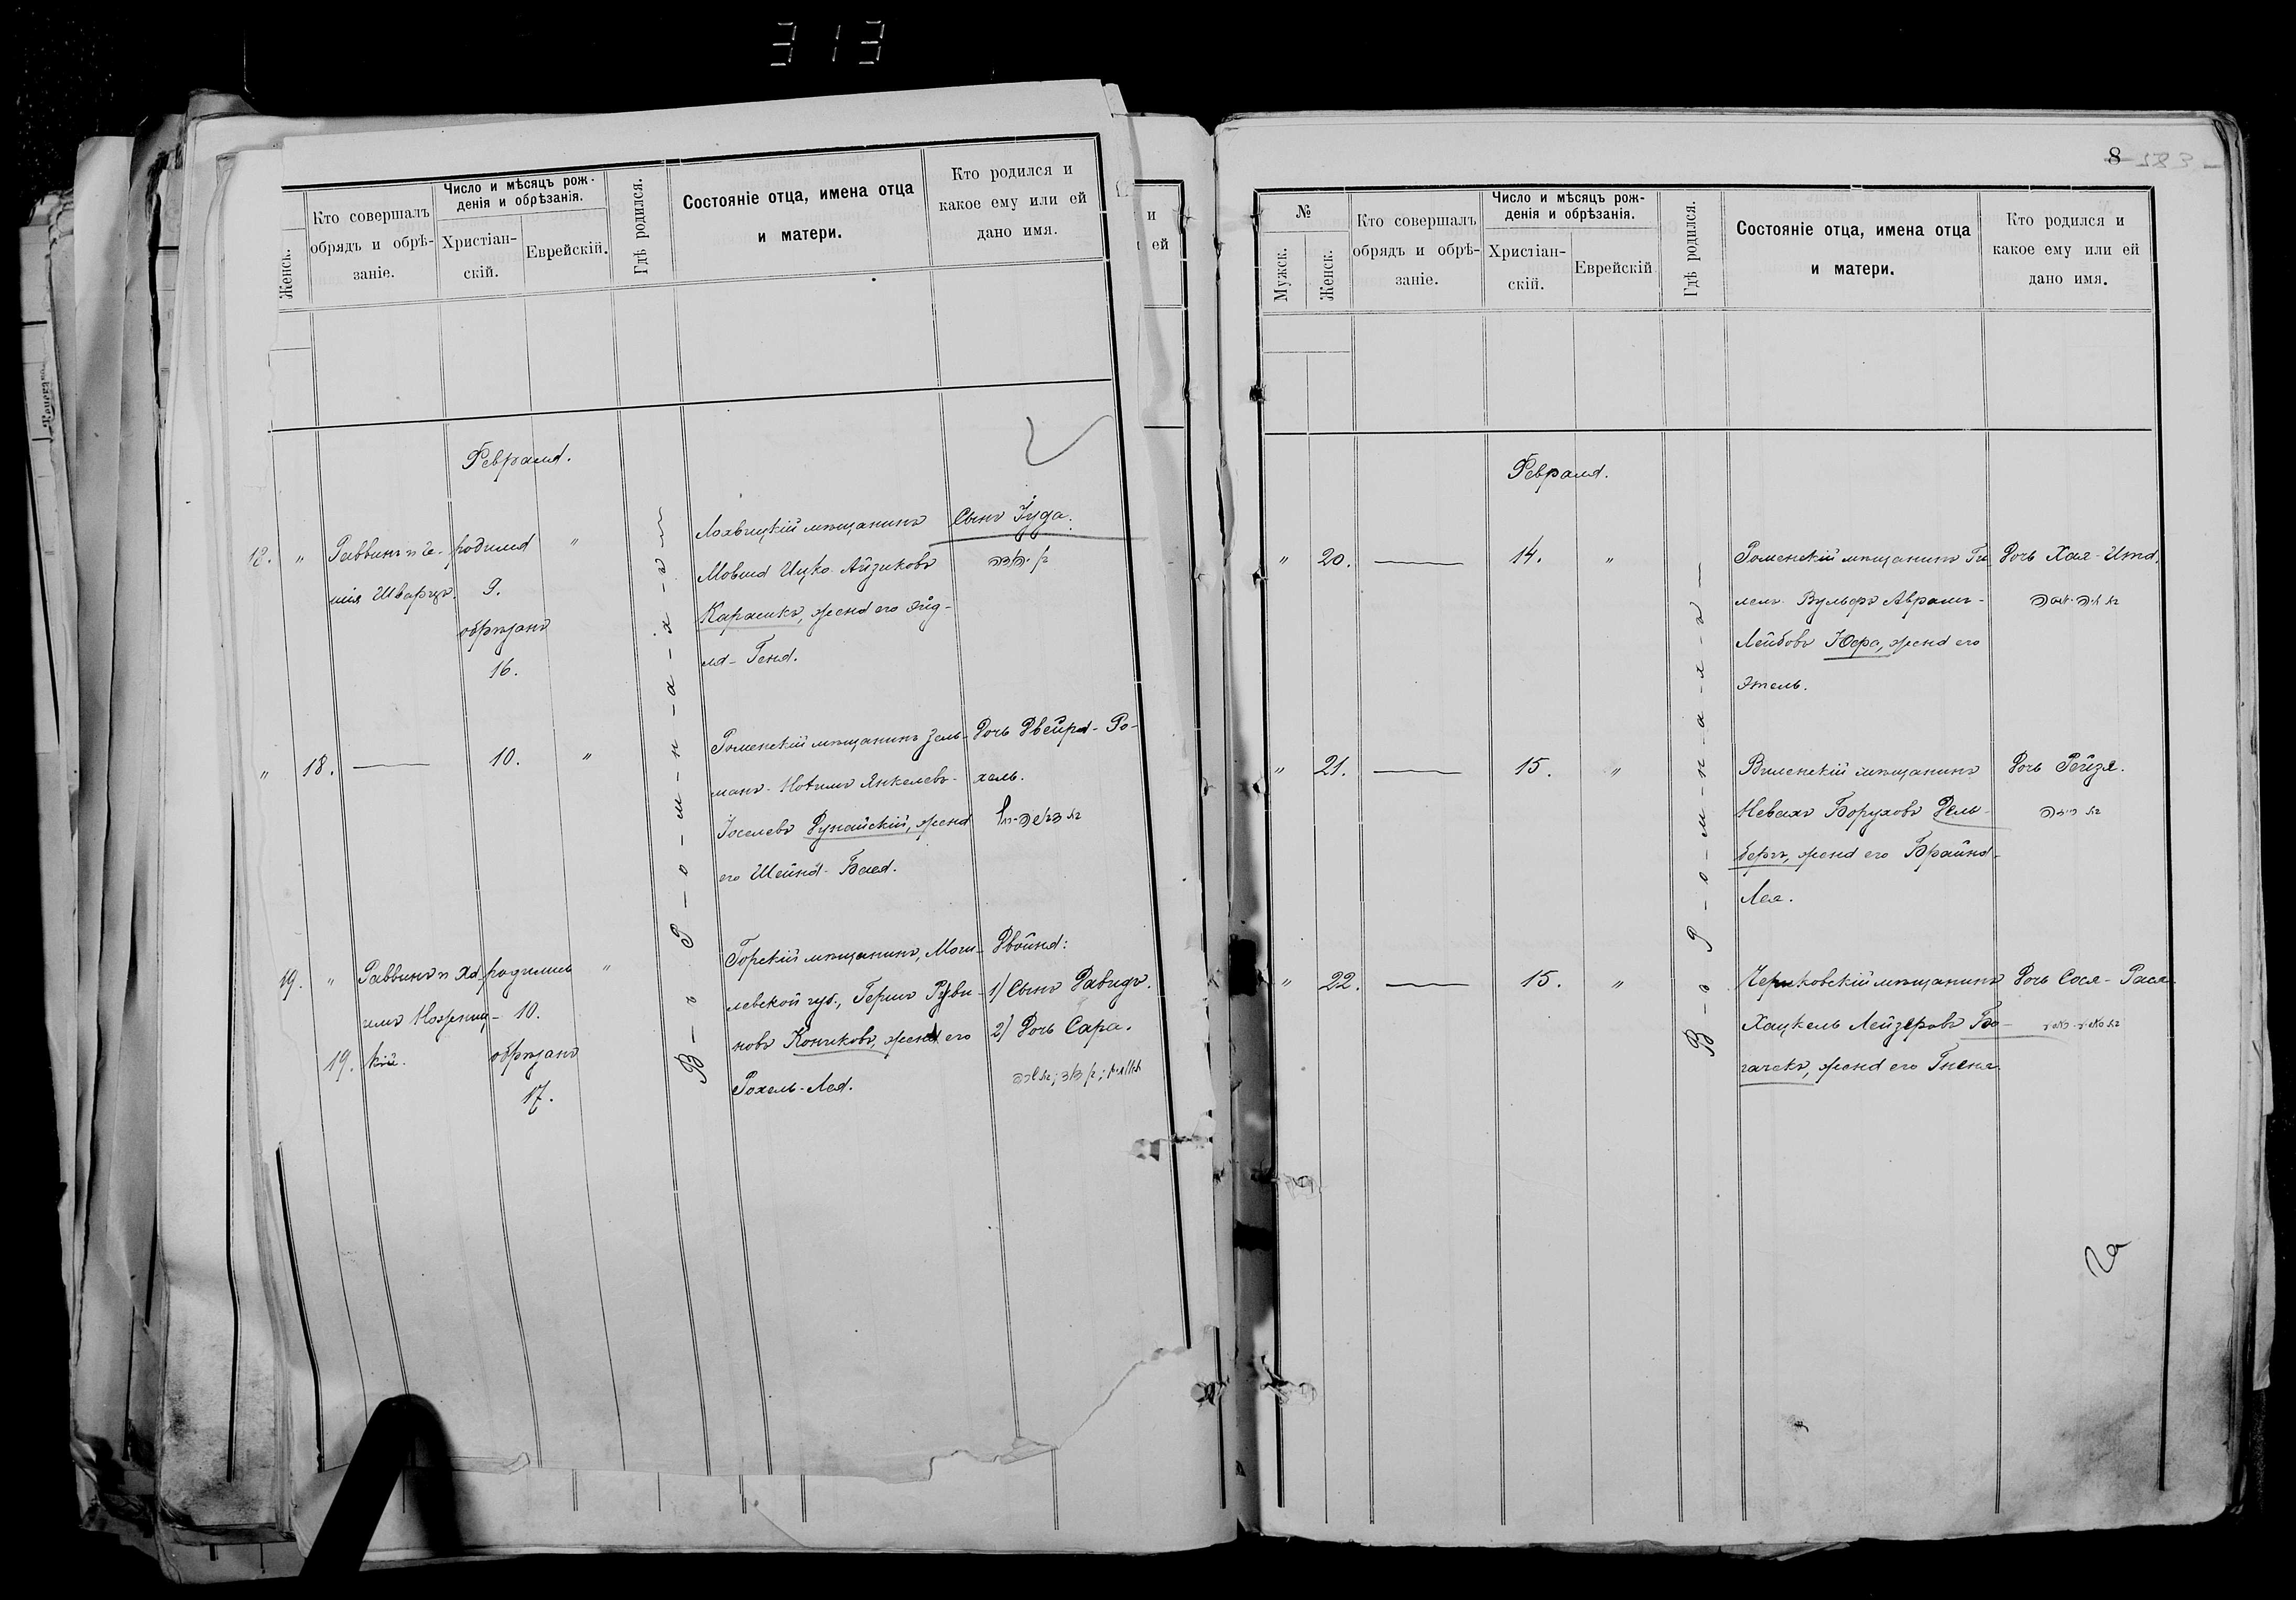 313
Женск.
Кто совершалъ
обрядъ и обрѣ-
заніе.
Число и мѣсяцъ рож-
денія и обрѣзанія.
Христіан-
скій.
Еврейскій.
Гдѣ родился.
Состояніе отца, имена отца
и матери.
Кто родился и
какое ему или ей
дано имя.
Февраля.
В-ъ Р-о-м-н-а-х-ъ
Раввинъ и
Шварцъ.
родился
9.
обрѣзанъ
16.
"
Лохвицкій мѣщанинъ
Мовша Ицко Айзиковъ
Карасикъ, жена его Эйд-
ля-Геня.
Сынъ Іуда.
" 18. — 10. "
Роменскій мѣщанинъ Зель-
манъ-Нотимъ Янкелевъ-
Іоселевъ Дунайскій, жена
его Шейна-Бася.
Дочь Двейра-Ро-
хель.
19. "
19.
Раввинъ и
родились
10.
обрѣзанъ
17.
"
Горскій мѣщанинъ, Моги-
левской губ., Гершъ Руви-
новъ Кончиковъ, жена его
Рохель-Лея.
Двойня:
1) Сынъ Давидъ.
2) Дочь Сара.
и
ей
8 583
№
Мужск.
Женск.
Кто совершалъ
обрядъ и обрѣ-
заніе.
Число и мѣсяцъ рож-
денія и обрѣзанія.
Христіан-
скій.
Еврейскій
Гдѣ родился.
Состояніе отца, имена отца
и матери.
Кто родился и
какое ему или ей
дано имя.
Февраля.
В-ъ Р-о-м-н-а-х-ъ
" 20. — 14. "
Роменскій мѣщанинъ Ги-
лель Вульфъ Абрамъ-
Лейбовъ Юфа, жена его
Этель.
Дочь Хая-Ита.
" 21. — 15. "
Виленскій мѣщанинъ
Невахъ Боруховъ Гель-
бергъ, жена его Брайна-
Лея.
Дочь Рейзя.
" 22. — 15. "
Чериковскій мѣщанинъ
Хацкель Лейзеровъ Бо-
гачекъ, жена его Гненя.
Дочь Сося-Рася.